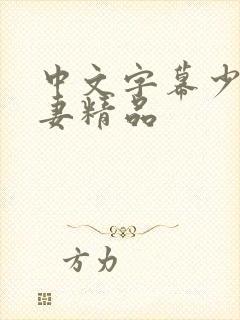 中文字幕少
妻精品
方力